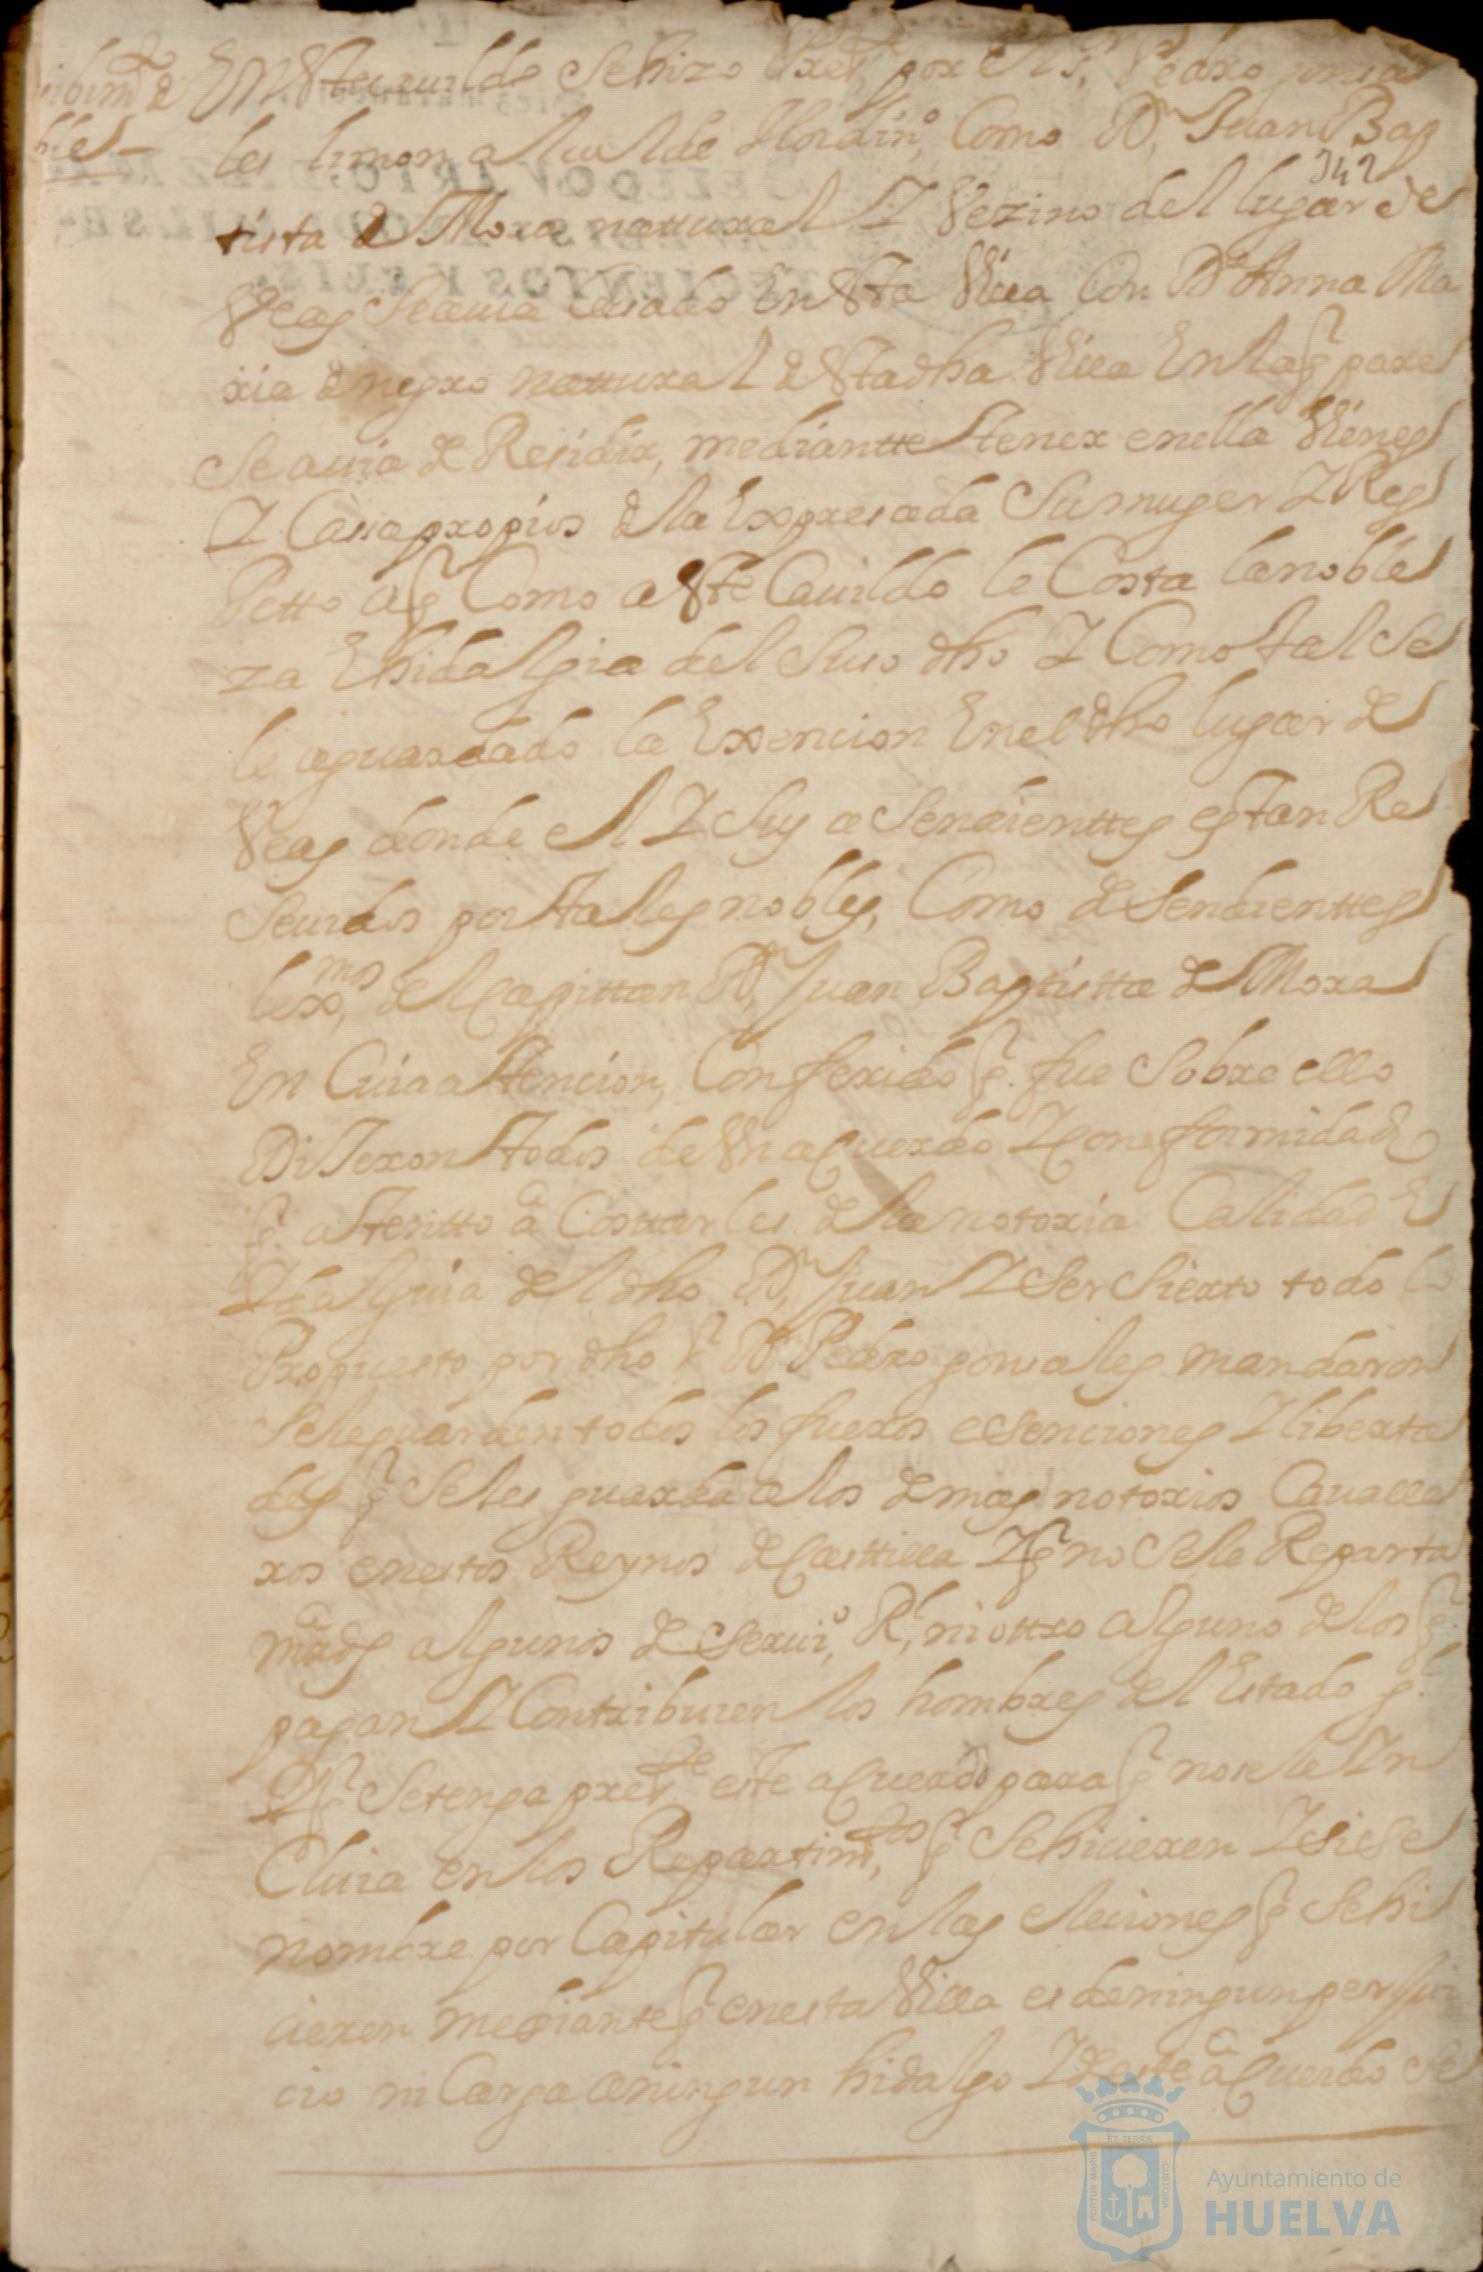 ribim.to de
bles
En Este cauildo se hizo pres.te por el s.r Pedro gonsa
les limon alcalde Hordin.o Como D.n Juan Bap
342
tista de Mora natural Y Vezino del lugar de
Veas Se auia casado En Esta Villa Con D.a Anna Ma
ria de negro natural de Esta dha Villa En la q pare
Se auia de Residir, mediantte tener en ella Vienes
Y Casa propios de la Expresada Su muger Y Res
Petto a q Como a Este Cauildo le Costa la noble
za E hidalgia del Suso dho Y Como tal se
le aguardado la Exencion En el dho lugar de
Veas donde el Y Sus asendienttes estan Re
Seuidos por tales nobles, Como desendienttes
lex.mos del Capittan D.n Juan Baptistta de Mora
En Cuia attencion, Conferido q. fue Sobre ello
DiJeron todos de Vn acuerdo Y conformidad
q attentto a Costarles de la notoria Calidad E
Ydalguia del dho D.n Juan Y Ser Sierto todo lo
Propuesto por dho S.r D.n Pedro gonsales mandaron
Se le guarden todos los fueros esenciones Y liberta
des q Se les guarda a los demas notorios Cavalle
ros en estos Reynos de Casttilla Y q no Se le Reparta
mrds algunos de Serui.o R.l ni ottro alguno de los q.
pagan Y Contribuien los hombres del Estado g.l
Y q Se tenga pres.te este acuerdo para q no se le Yn
Cluia en los Repartim.tos q Se hicieren Y si se
nombre por Capitular en las eleciones q Se hi
cieren mediante q en esta Villa es de ningun perjui
cio ni Carga a ningun hidalgo Y de este acuerdo se
PORTUS MARIS
ET TERRÆ
CUSTODIA
Ayuntamiento de
HUELVA